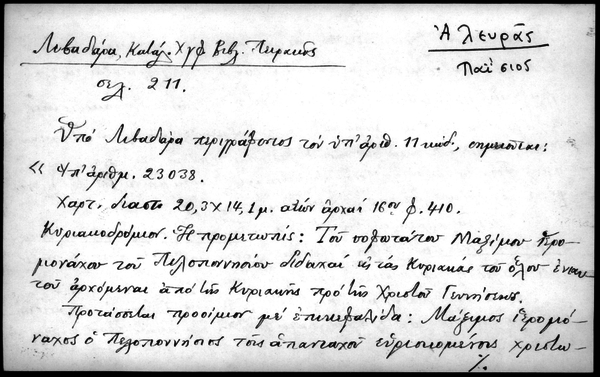 Λιβαδάρα, Κατάλ. Χγφ Βιβλ. Πειραιῶς
Ἀλευρᾶς
Παΐσιος
σελ. 211.
Ὑπὸ Λιβαδάρα περιγράφοντος τὸν ὑπ' ἀριθ. 11 κώδ., σημειοῦται:
« Ὑπ' ἀριθμ. 23038.
Χαρτ. διαστ. 20,3 × 14,1 μ. αἰών ἀρχαί 16ου φ. 410.
Κυριακοδρόμιον. Ἡ προμετωπίς: Τοῦ σοφωτάτου Μαξίμου ἱερο-
μονάχου τοῦ Πελοποννησίου διδαχαὶ εἰς τὰς Κυριακάς τοῦ ὅλου ἐνιαυ-
τοῦ ἀρχόμεναι ἀπὸ τῆς Κυριακῆς πρὸ τῆς Χριστοῦ Γεννήσεως.
Προτάσσεται προοίμιον μὲ ἐπικεφαλίδα: Μάξιμος ἱερομό-
ναχος ὁ Πελοποννήσιος τοῖς ἁπανταχοῦ εὑρισκομένοις χριστω-
./.